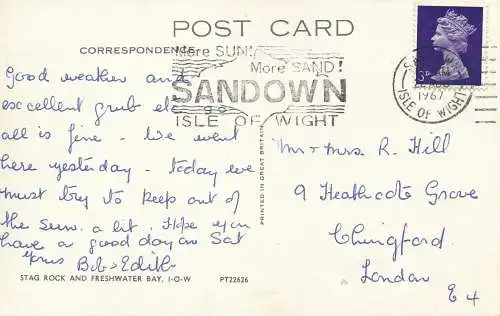 POST CARD
CORRESPONDENCE
More SUN!
More SAND!
SANDOWN
ISLE OF WIGHT
3D
1967
ISLE OF WIGHT
Good weather and
excellent grub etc
all is fine - We went
here yesterday - Today we
must try to keep out of
the sun a bit. Hope you
have a good day on Sat
Yrus
Bob & Edith
PRINTED IN GREAT BRITAIN
Mr & Mrs R. Hill
9 Heathcote Grove
Chingford
London
E4
STAG ROCK AND FRESHWATER BAY, I-O-W PT22626